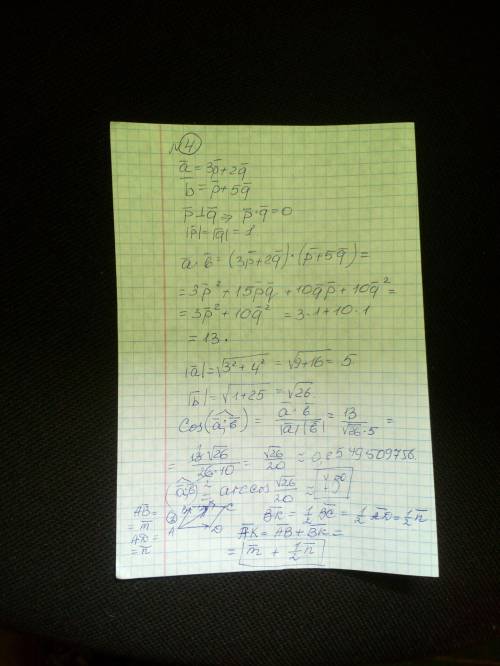 № 4
a̅ = 3p̅+2q̅
b̅ = p̅+5q̅
p̅⊥q̅ ⇒ p̅·q̅=0
|p̅|=|q̅|=1
a̅·b̅ = (3p̅+2q̅)·(p̅+5q̅)=
=3p̅²+15p̅q̅+10q̅p̅+10q̅²=
=3p̅²+10q̅² =3·1+10·1
=13.
|a̅|=√(3²+4²) =√(9+16)=5
|b̅|=√(1+25) =√26
Cos(a̅;b̅) = a̅·b̅/|a̅||b̅| = 13/√26·5 =
= 13√26/26·10 = √26/20 ≈ 0,2549509756.
(a̅;b̅) = arccos √26/20 ≈
A̅B̅= m̅
A̅D̅= n̅
A D C
B̅K̅ = 1/2 B̅C̅ = 1/2 A̅D̅=1/2 n̅
A̅K̅ = A̅B̅+B̅K̅ =
= m̅ + 1/2 n̅